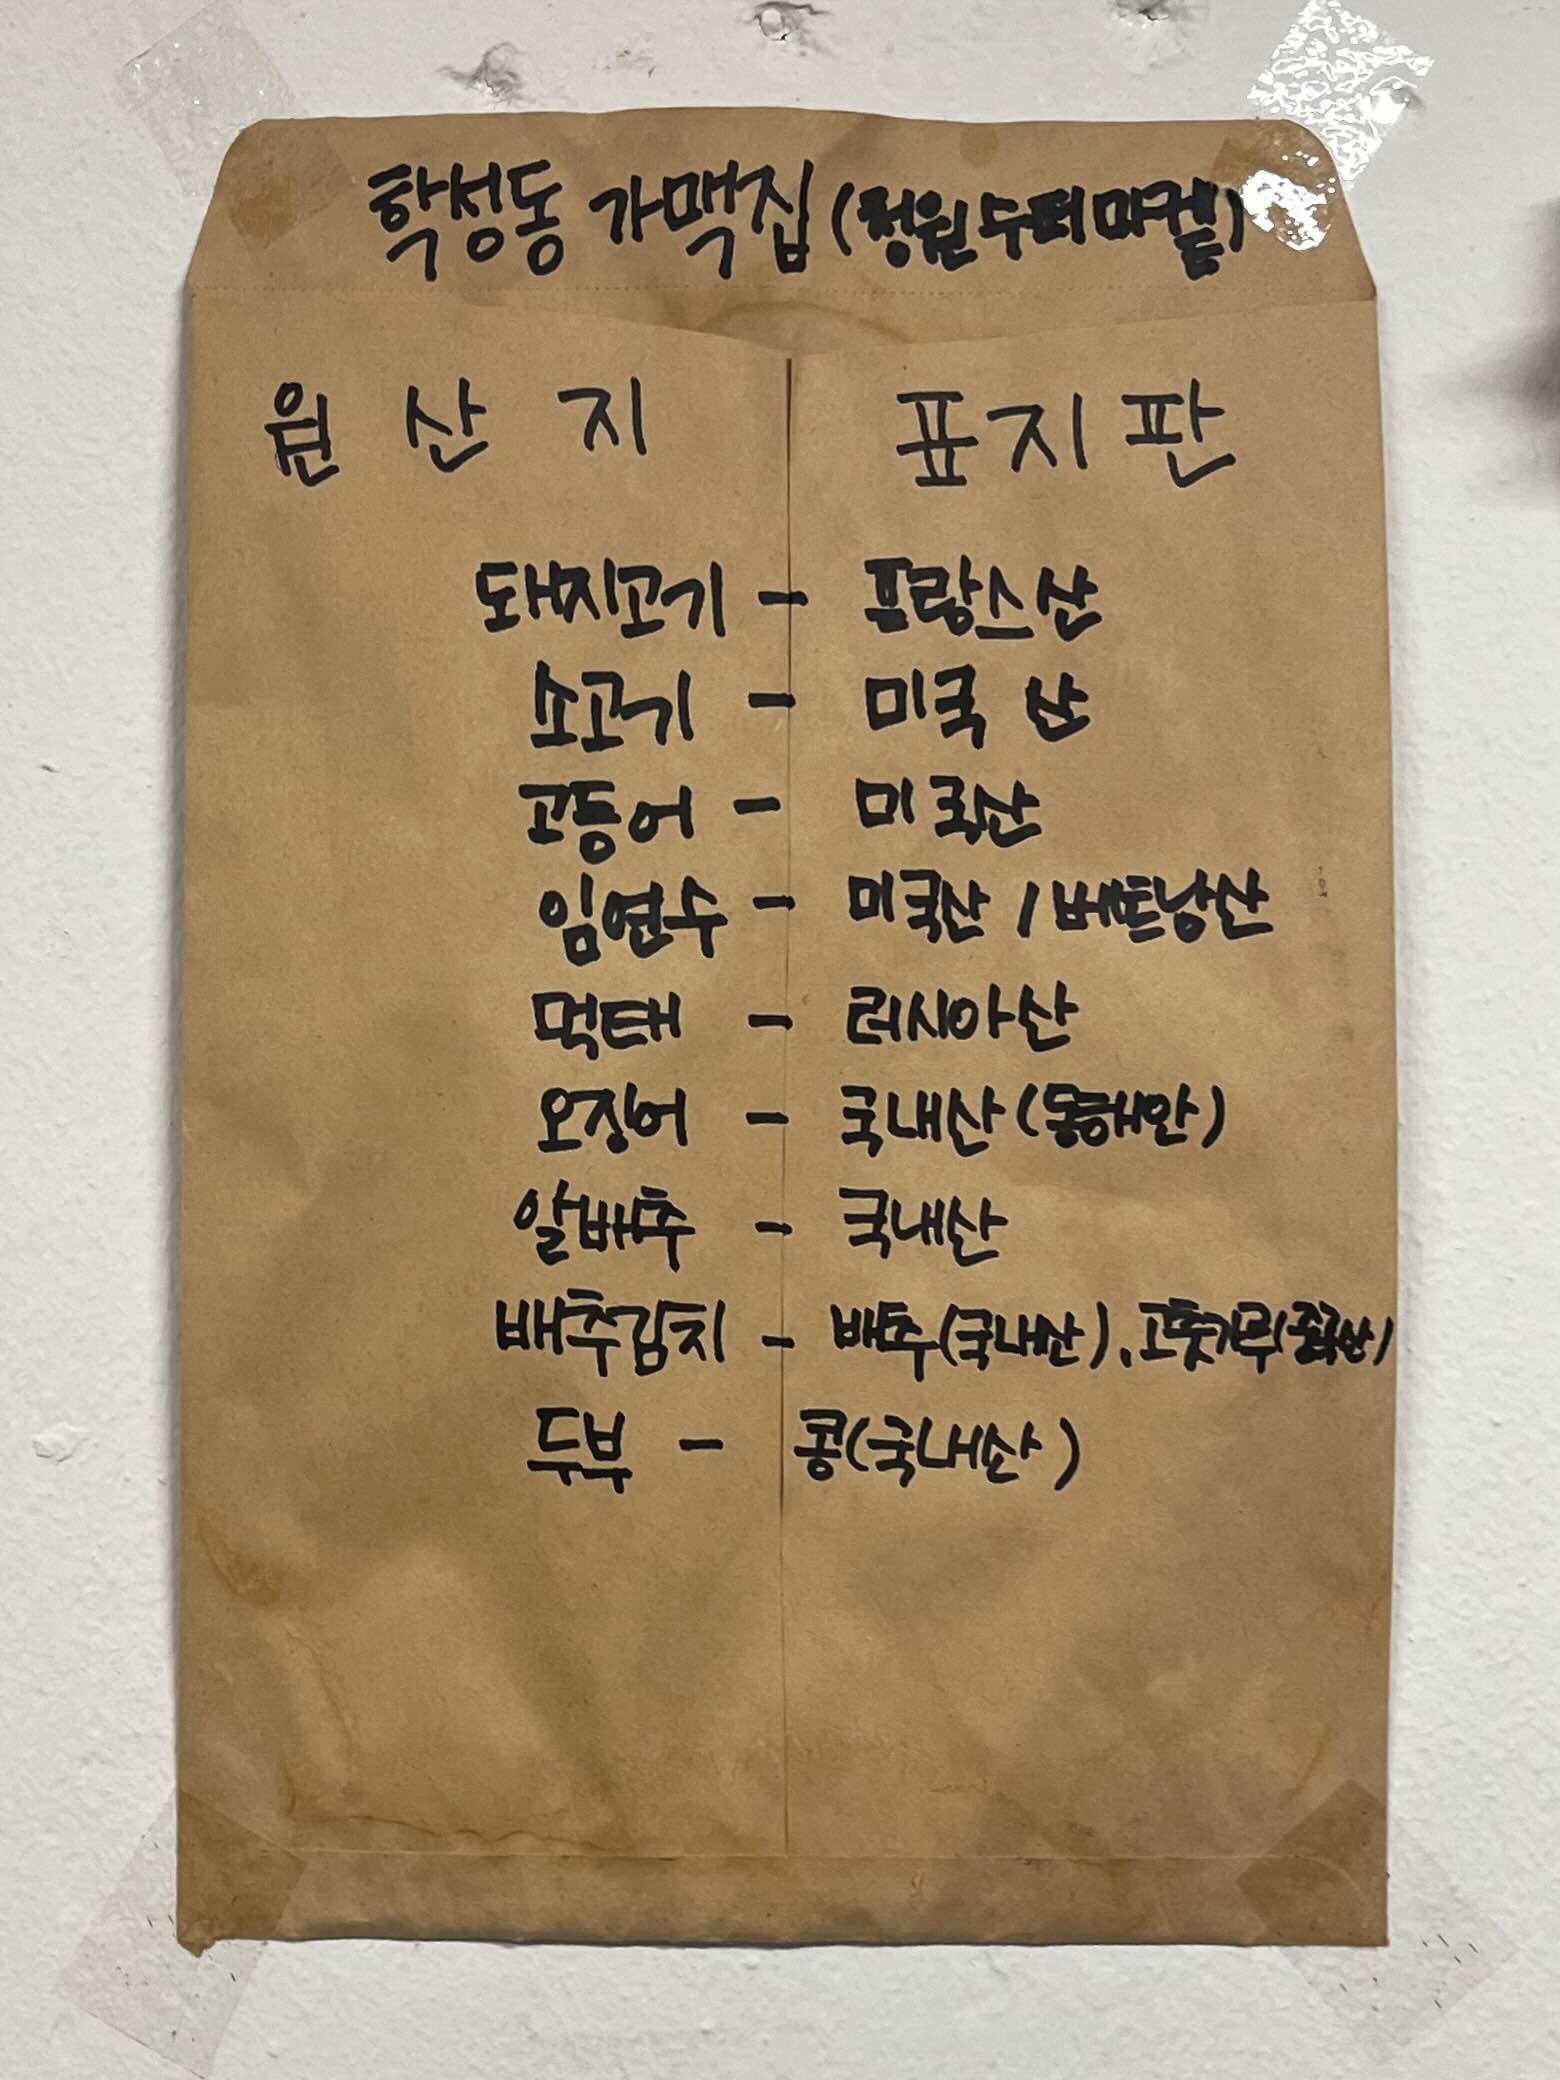 학성동 가맥집 (정원수퍼마켙)
원산지 표지판
돼지고기 - 프랑스산
소고기 - 미국산
고등어 - 미국산
임연수 - 미국산 / 베트남산
먹태 - 러시아산
오징어 - 국내산 (동해안)
알배추 - 국내산
배추김치 - 배추(국내산), 고춧가루(중국산)
두부 - 콩(국내산)